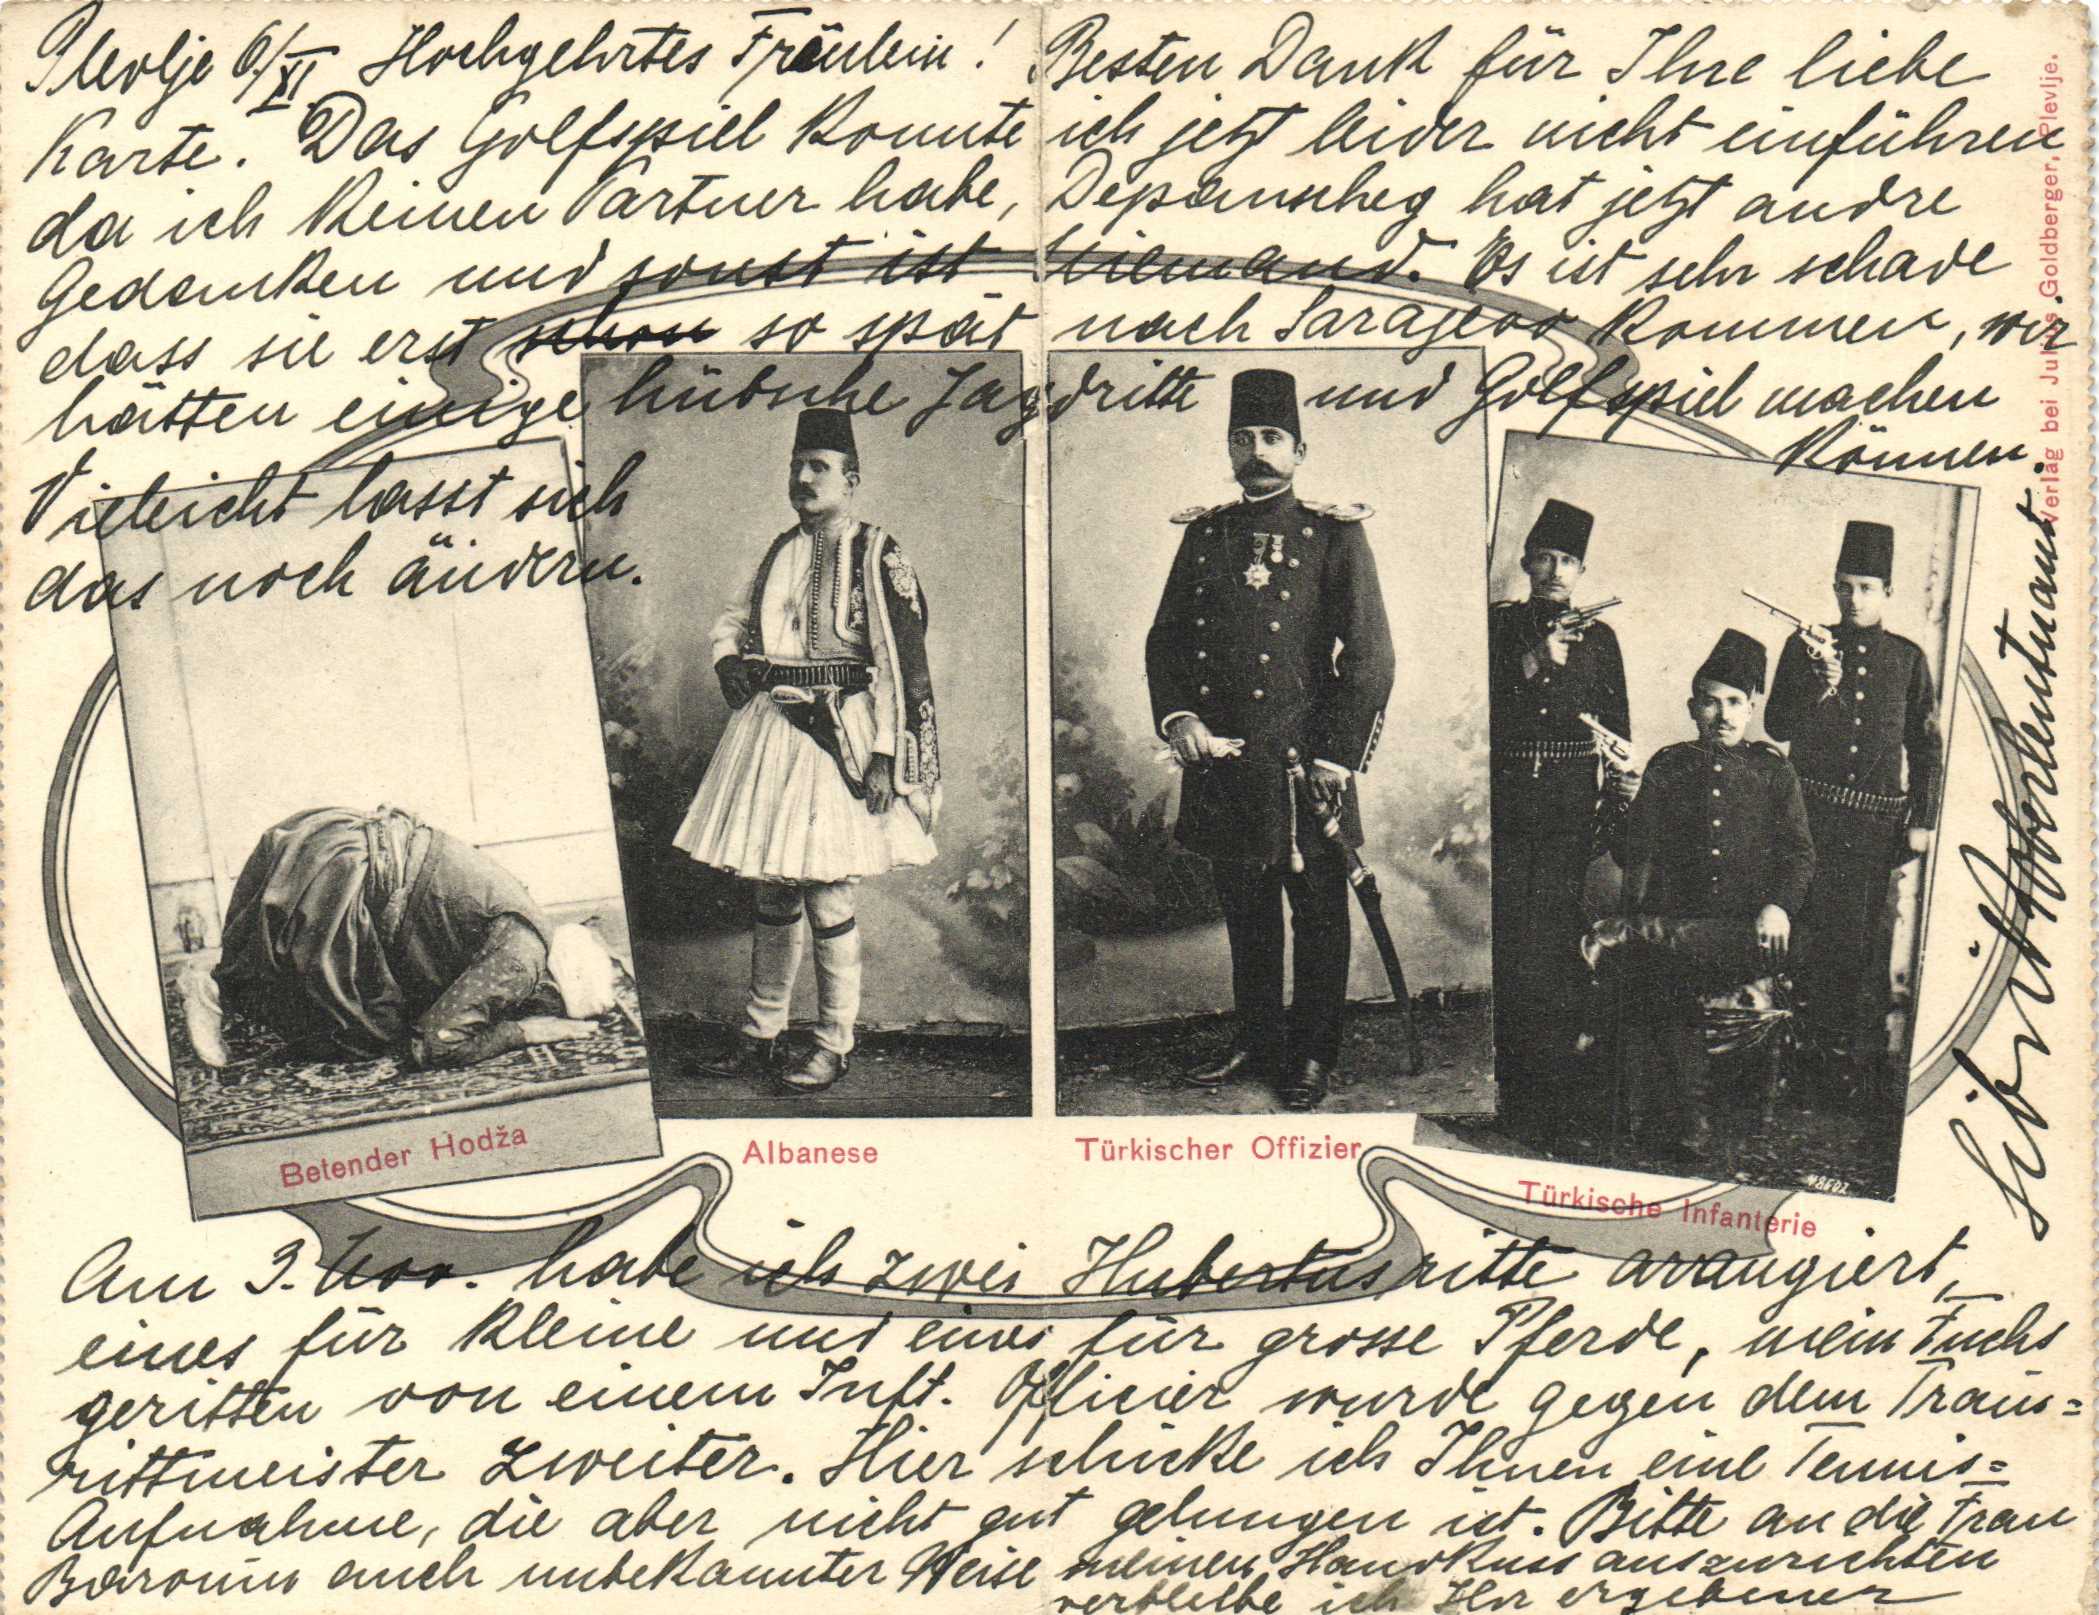 Plevlje 6/XI. Hochgehrtes Fräulein! Besten Dank für Ihre liebe
Karte. Das Golfspiel konnte ich jetzt leider nicht einführen
da ich keinen Partner habe, hat jetzt andre
Gedanken und sonst ist Niemand. Es ist sehr schade
dass sie erst schon so spät nach Sarajevo kommen, wir
hätten einige hübsche Jagdritte und Golfspiel machen
können.
Vieleicht lasst sich
das noch ändern.
Verlag bei Julius Goldberger, Plevlje.
Betender Hodža
Albanese
Türkischer Offizier
Türkische Infanterie
Am 3. Nov. habe ich zwei Hubertusritte arangiert,
eines für kleine und eines für grosse Pferde, mein Fuchs
geritten von einem Inft. Officier wurde gegen dem Train=
rittmeister zweiter. Hier schicke ich Ihnen eine Tennis=
Aufnahme, die aber nicht gut gelungen ist. Bitte an die Frau
Baronin auch unbekannter Weise meinen Handkuss auszurichten
verbleibe ich Ihr ergebener
Oberleutnant.